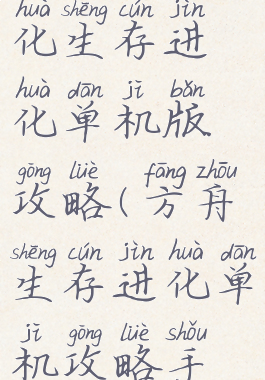 huà shēng cún jìn
化生存进
huà dān jī bǎn
化单机版
gōng lüè fāng zhōu
攻略(方舟
shēng cún jìn huà dān
生存进化单
jī gōng lüè shǒu
机攻略手